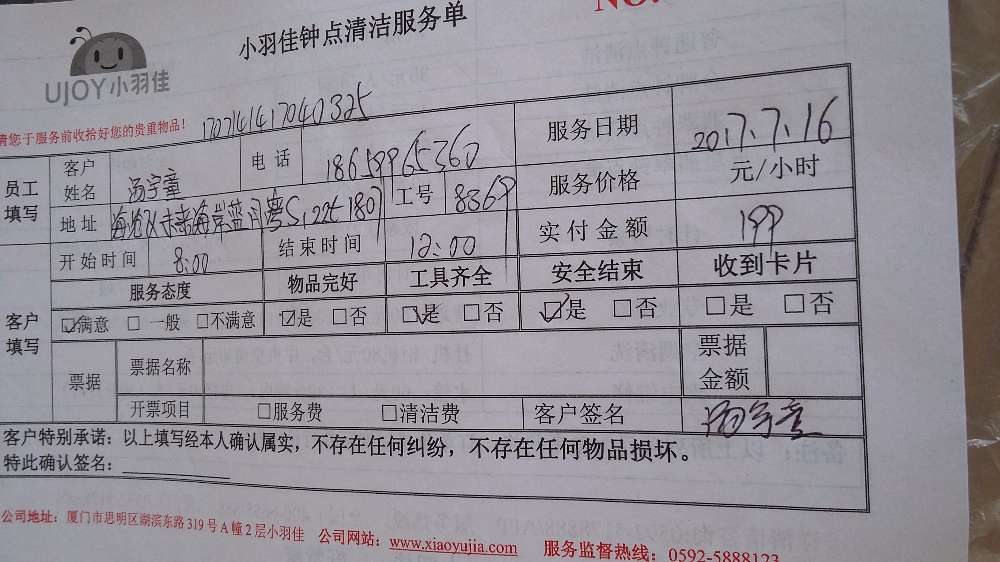 NO.
小羽佳钟点清洁服务单
UJOY小羽佳
请您于服务前收拾好您的贵重物品！ 1707141417040325
员工填写 客户姓名 汤宇童 电话 18659965360 服务日期 2017.7.16
地址 海沧区未来海岸蓝月湾 工号 8369 服务价格 元/小时
开始时间 8:00 结束时间 12:00 实付金额 199
客户填写 服务态度 物品完好 工具齐全 安全结束 收到卡片
☑满意 □一般 □不满意 ☑是 □否 ☑是 □否 ☑是 □否 □是 □否
票据 票据名称 票据金额
开票项目 □服务费 □清洁费 客户签名 汤宇童
客户特别承诺：以上填写经本人确认属实，不存在任何纠纷，不存在任何物品损坏。
特此确认签名：
公司地址：厦门市思明区湖滨东路319号A幢2层小羽佳 公司网站：www.xiaoyujia.com 服务监督热线：0592-5888123